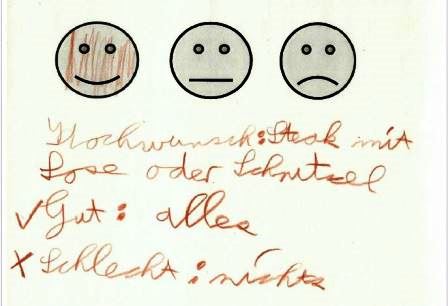 Kochwunsch: Steak mit
Sose oder Schnitzel
✓ Gut: alles
x Schlecht: nichts